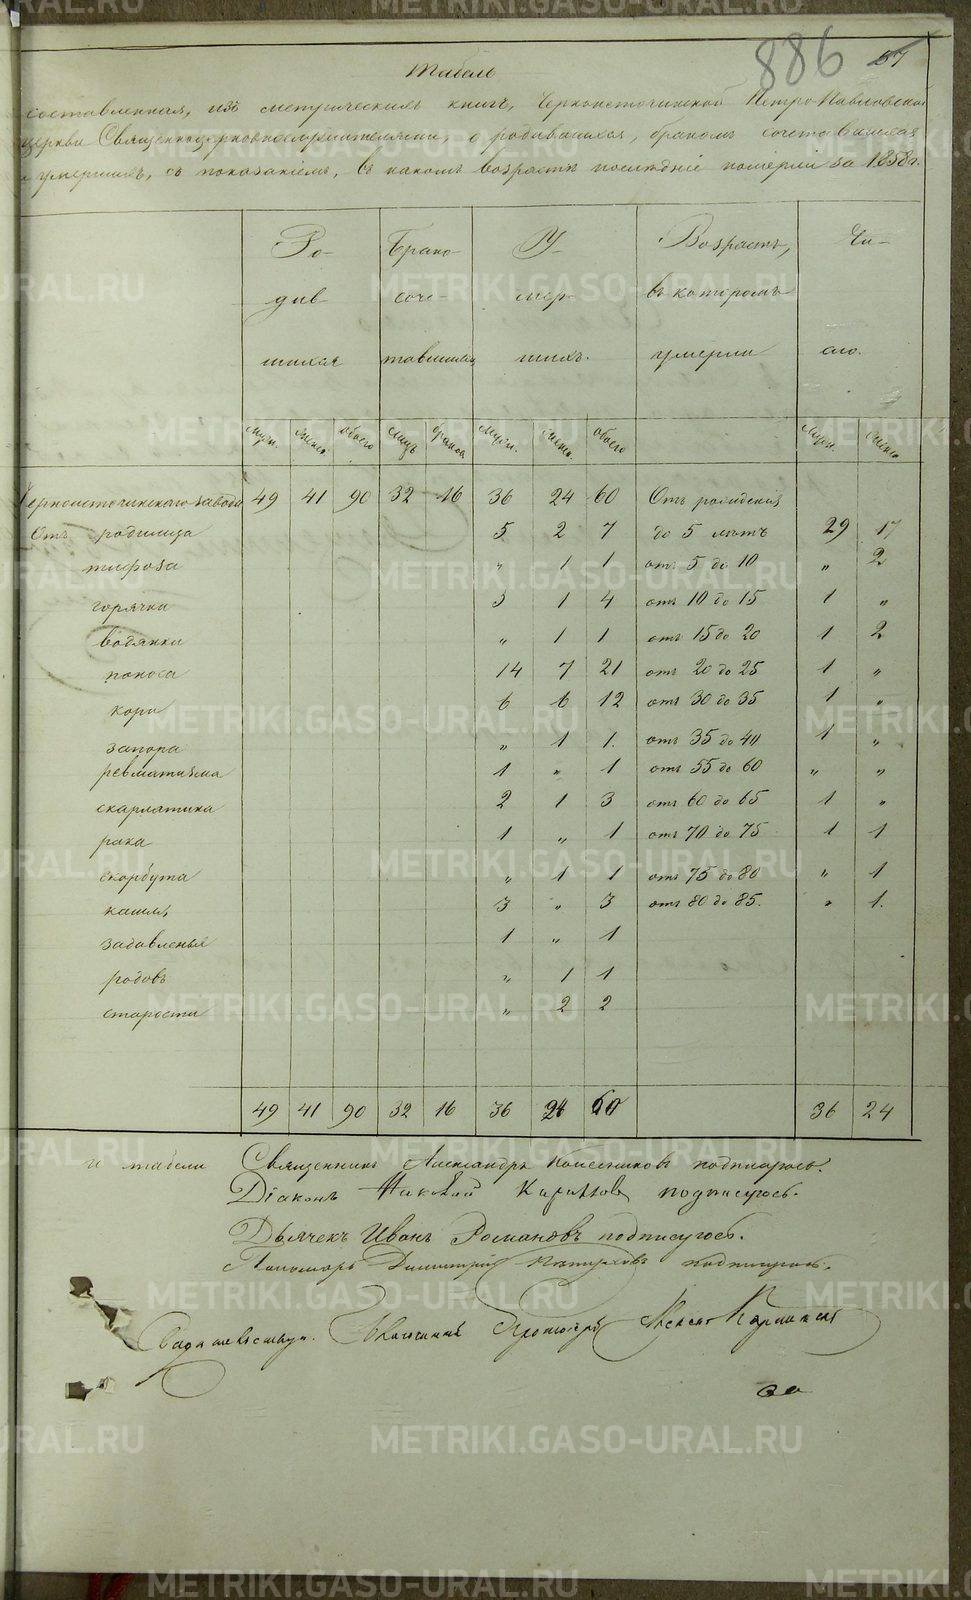 886 57
Табель
составленная, изъ метрическихъ книгъ, Черноисточинской Петро-Павловской
церкви Священноцерковнослужителями, о родившихся, бракомъ сочетавшихся
и умершихъ, съ показаніемъ, въ какомъ возрастѣ послѣдніе померли за 1858 г.
Ро- Брако- У- Возрастъ, Чи-
див- соче- мер- въ которомъ
шихся тавшихся шихъ. умерли сло.
муж. женс. обоего лицъ браков муж. женс. обоего муж. женс
Черноисточинскаго завода 49 41 90 32 16 36 24 60 Отъ рожденія
Отъ родимца 5 2 7 до 5 лѣтъ 29 17
тифоза „ 1 1 отъ 5 до 10 „ 2
горячки 3 1 4 отъ 10 до 15 1 „
водянки „ 1 1 отъ 15 до 20 1 2
поноса 14 7 21 отъ 20 до 25 1 „
кори 6 6 12 отъ 30 до 35 1 „
запора „ 1 1. отъ 35 до 40 1 „
ревматизма 1 „ 1 отъ 55 до 60 „ „
скарлатина 2 1 3 отъ 60 до 65 1 „
рака 1 „ 1 отъ 70 до 75 1 1
скорбута „ 1 1 отъ 75 до 80 „ 1
кашля 3 „ 3 отъ 80 до 85. „ 1.
задавленья 1 „ 1
родовъ „ 1 1
старости „ 2 2
49 41 90 32 16 36 24 60 36 24
и табели Священникъ Александръ Колесниковъ подписуюсь.
Діаконъ Николай подписуюсь.
Дьячекъ Иванъ Романовъ подписуюсь.
Пономарь Димитрій подписуюсь.
Свидѣтельствун. Благочинный Протоіерей
METRIKI.GASO-URAL.RU